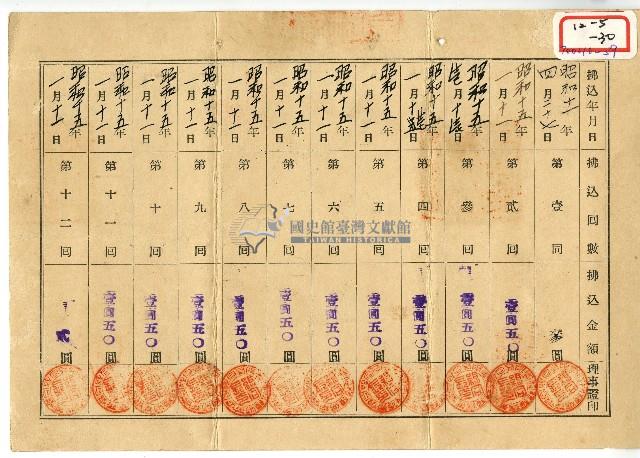 12-5
-30
拂込年月日 拂込回數 拂込金額 理事證印
昭和十一年四月二十七日 第壹回 圓
昭和十五年一月十一日 第貳回 壹圓五〇
昭和十五年 月十 日 第參回 壹圓五〇 圓
昭和十五年一月十 日 第四回 壹圓五〇 圓
昭和十五年一月十一日 第五回 壹圓五〇 圓
昭和十五年一月十一日 第六回 壹圓五〇 圓
昭和十五年一月十一日 第七回 壹圓五〇 圓
昭和十五年一月十一日 第八回 壹圓五〇 圓
昭和十五年一月十一日 第九回 壹圓五〇 圓
昭和十五年一月十一日 第十回 壹圓五〇 圓
昭和十五年一月十一日 第十一回 壹圓五〇 圓
昭和十五年一月十一日 第十二回 貳圓
國史館臺灣文獻館
TAIWAN HISTORICA